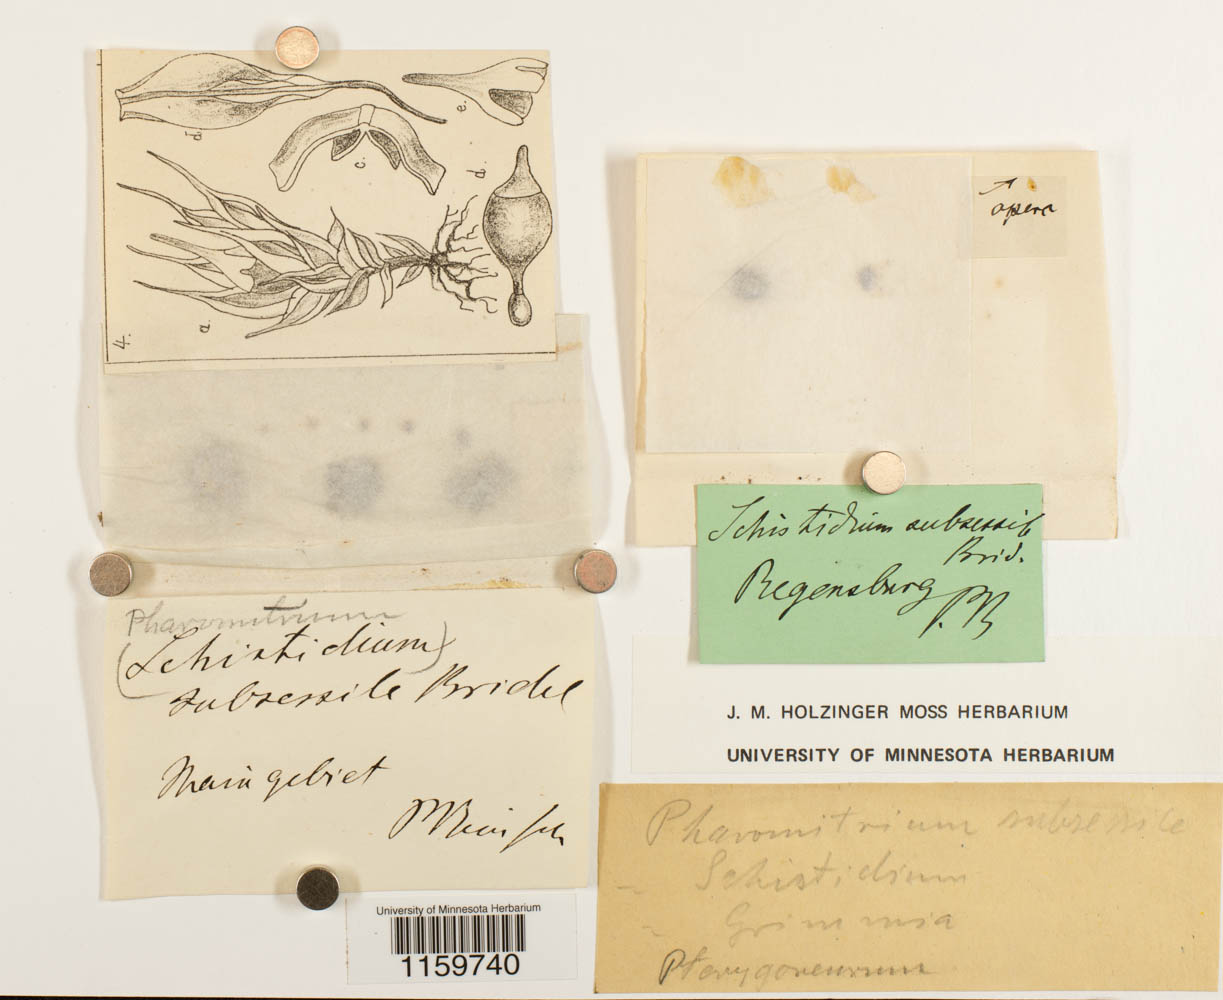 d.
e.
c.
d.
a.
4.
opera
Pharomitrium
(Schistidium)
subsessile Bridel
Maingebiet
PReinsch
Schistidium subsessile
Brid.
Regensburg
P.R
J. M. HOLZINGER MOSS HERBARIUM
UNIVERSITY OF MINNESOTA HERBARIUM
Pharomitrium subsessile
- Schistidium
- Grimmia
Pterygoneurum
University of Minnesota Herbarium
1159740